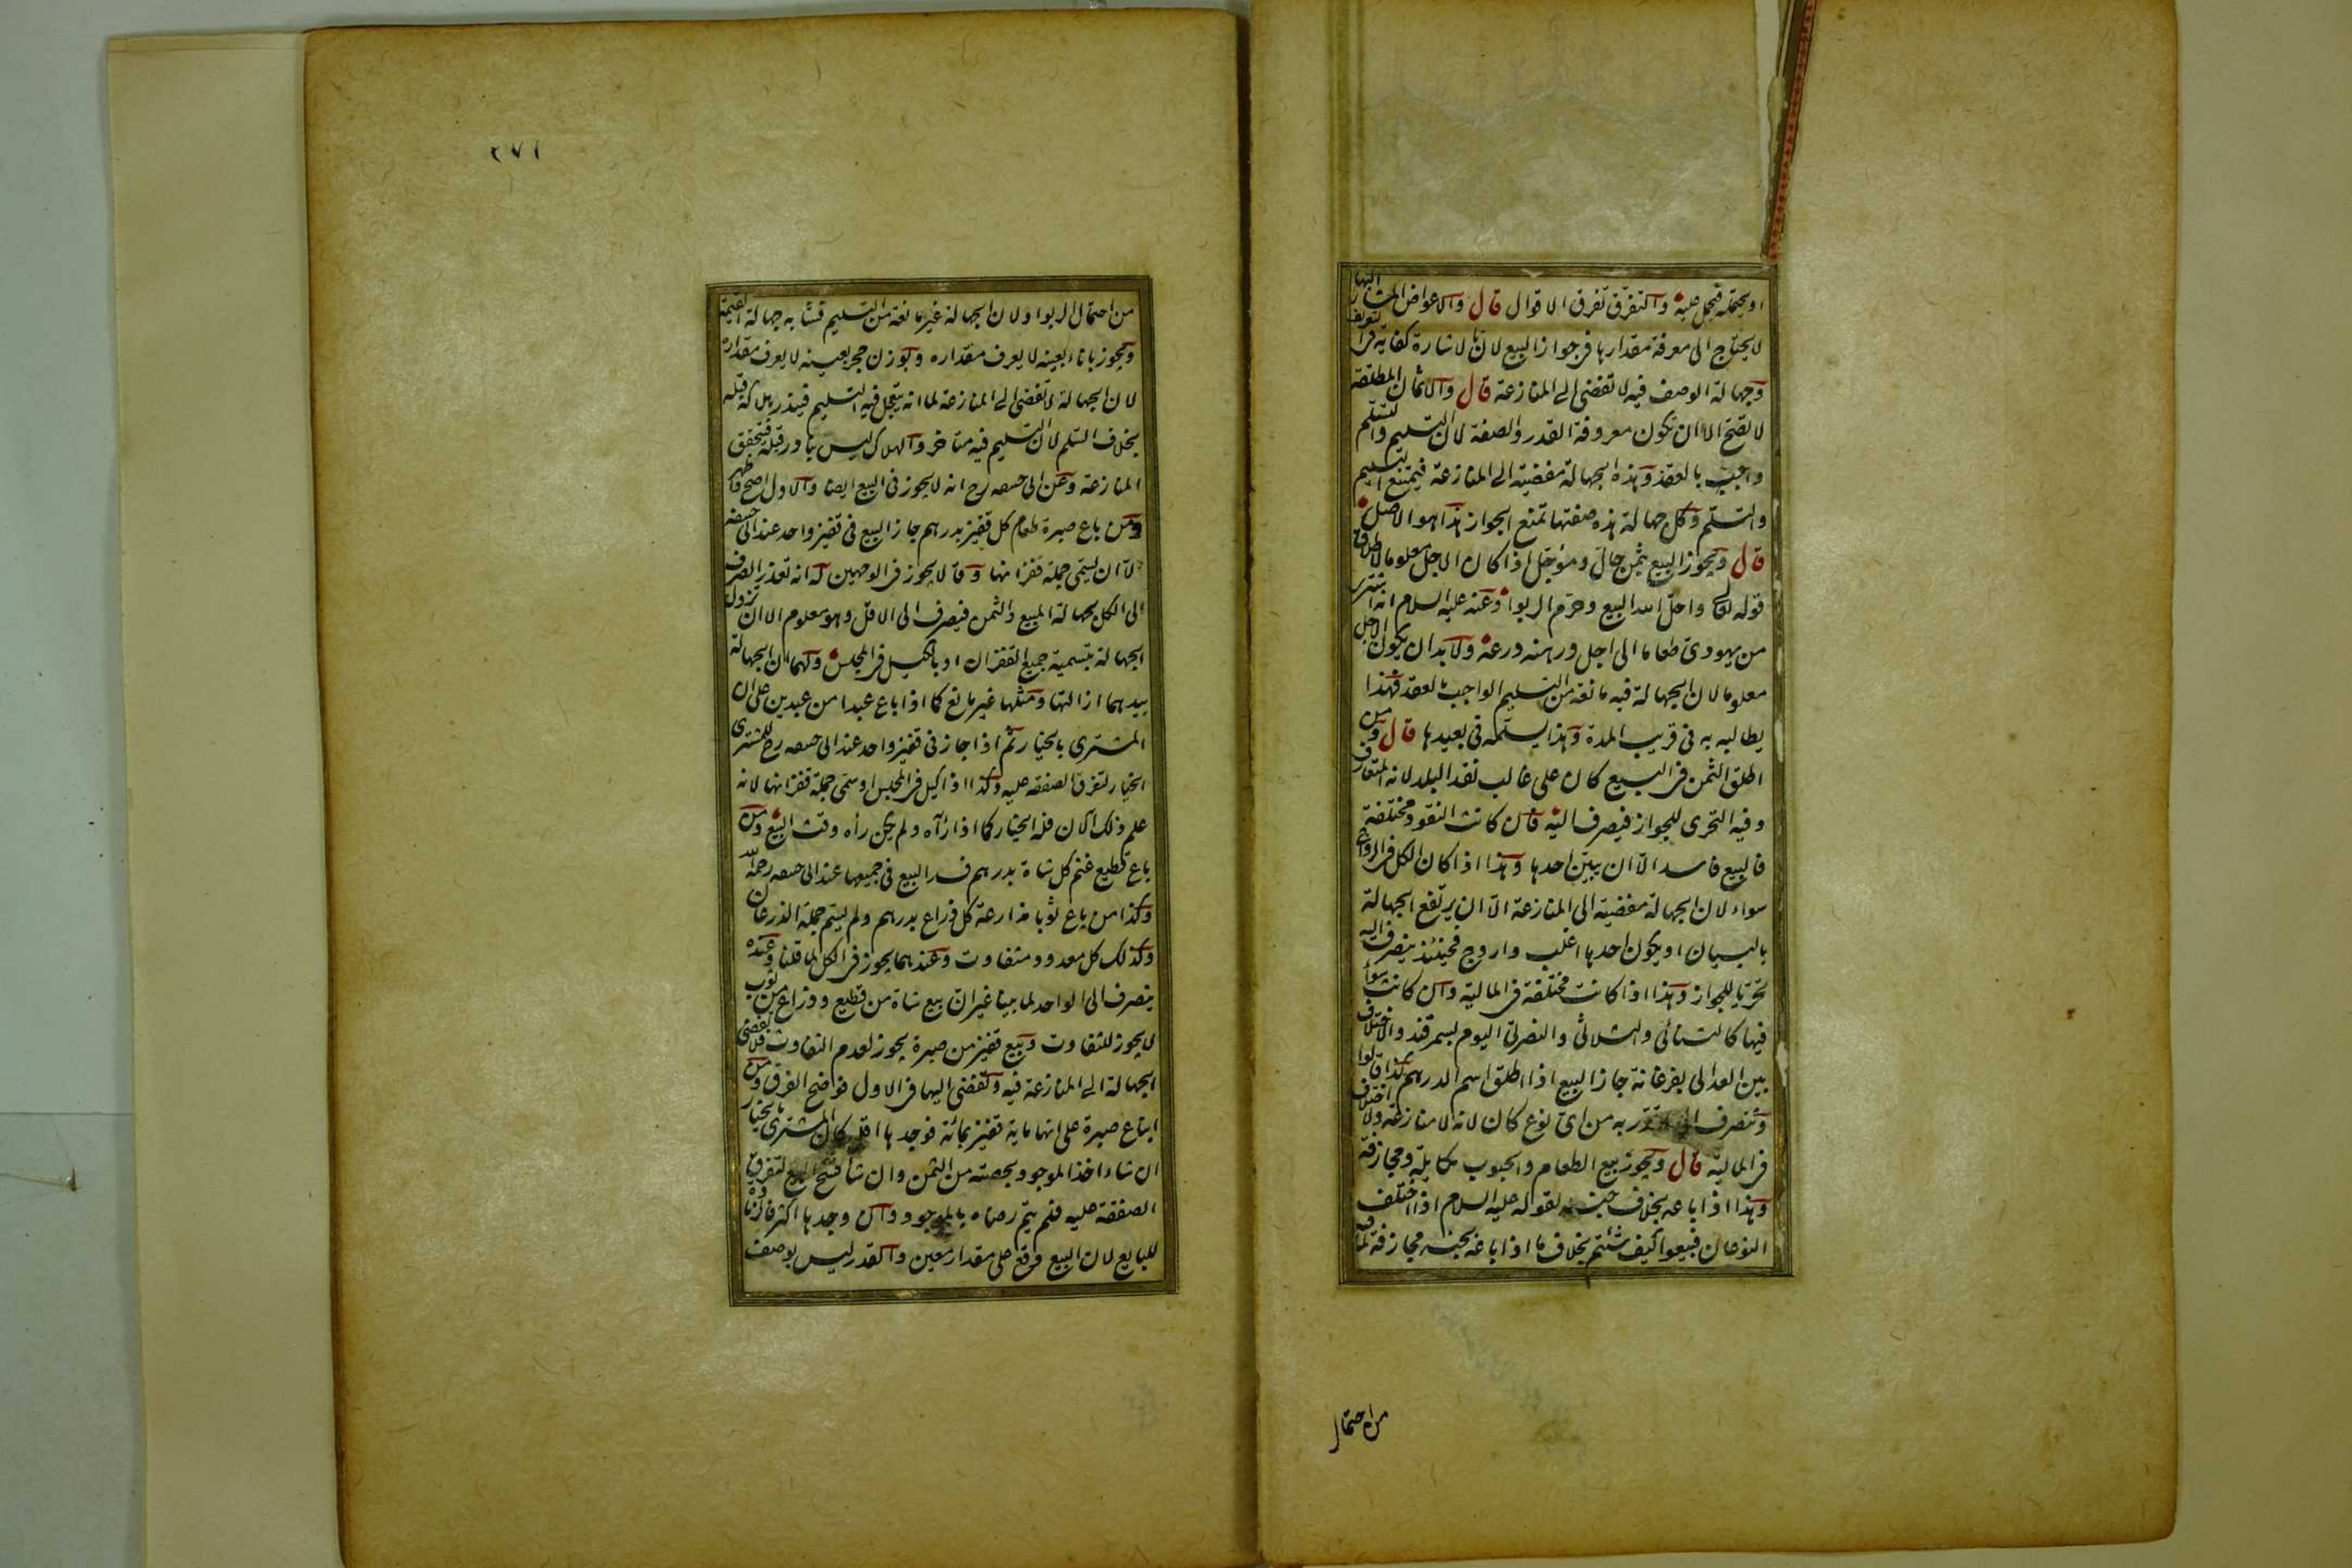 او يحتمله فيحمل عليه والتفرق تفرق الاقوال قال والاعواض المشار اليها
لا يحتاج الى معرفة مقدارها فى جواز البيع لان بالاشارة كفاية فى التعريف
وجهالة الوصف فيه لا تفضى الى المنازعة قال والاثمان المطلقة
لا تصح الا ان تكون معروفة القدر والصفة لان التسليم والتسلم
واجب بالعقد وهذه الجهالة مفضية الى المنازعة فيمتنع التسليم
والتسلم وكل جهالة هذه صفتها تمنع الجواز هذا هو الاصل
قال ويجوز البيع بثمن حال ومؤجل اذا كان الاجل معلوما لاطلاق
قوله تعالى واحل الله البيع وحرم الربوا وعنه عليه السلام انه اشترى
من يهودى طعاما الى اجل ورهنه درعه ولا بد ان يكون الاجل
معلوما لان الجهالة فيه مانعة من التسليم الواجب بالعقد فهذا
يطالبه به فى قريب المدة وهذا يسلمه فى بعيدها قال ومن
اطلق الثمن فى البيع كان على غالب نقد البلد لانه المتعارف
وفيه التحرى للجواز فيصرف اليه فان كانت النقود مختلفة
فالبيع فاسد الا ان يبين احدها وهذا اذا كان الكل فى الرواج
سواء لان الجهالة مفضية الى المنازعة الا ان يرتفع الجهالة
بالبيان او يكون احدها اغلب واروج فحينئذ يصرف اليه
تحريا للجواز وهذا اذا كانت مختلفة فى المالية وان كانت سواء
فيها كالثنائى والثلاثى والنصرتى اليوم بسمرقند والاختلاف
بين العدالى بفرغانة جاز البيع اذا اطلق اسم الدرهم كذا قالوا
وينصرف الى قدر به من اى نوع كان لانه لا منازعة ولا اختلاف
فى المالية قال ويجوز بيع الطعام والحبوب مكايلة ومجازفة
وهذا اذا باعه بخلاف جنسه لقوله عليه السلام اذا اختلف
النوعان فبيعوا كيف شئتم بخلاف ما اذا باعه بجنسه مجازفة لما فيه
من احتمال
٢٧١
من احتمال الربوا ولان الجهالة غير مانعة من التسليم فشابه جهالة القيمة
ويجوز باناء بعينه لا يعرف مقداره وبوزن حجر بعينه لا يعرف مقداره
لان الجهالة لا تفضى الى المنازعة لما انه يتعجل فيه التسليم فيندر هلاكه قبله
بخلاف السلم لان التسليم فيه متاخر والهلاك ليس بنادر قبله فتحقق
المنازعة وعن ابى حنيفه رح انه لا يجوز فى البيع ايضا والاول اصح واظهر
ومن باع صبرة طعام كل قفيز بدرهم جاز البيع فى قفيز واحد عند ابى حنيفه
الا ان يسمى جملة قفزانها وقالا يجوز فى الوجهين له انه تعذر الصرف
الى الكل لجهالة المبيع والثمن فيصرف الى الاقل وهو معلوم الا ان تزول
الجهالة بتسمية جميع القفزان او بالكيل فى المجلس ولهما ان الجهالة
بيدهما ازالتها ومثلها غير مانع كما اذا باع عبدا من عبدين على ان
المشترى بالخيار ثم اذا جاز فى قفيز واحد عند ابى حنيفه رح للمشترى
الخيار لتفرق الصفقة عليه وكذا اذا كيل فى المجلس او سمى جملة قفزانها لانه
علم ذلك الان فله الخيار كما اذا رآه ولم يكن رآه وقت البيع ومن
باع قطيع غنم كل شاة بدرهم فسد البيع فى جميعها عند ابى حنيفه رحمه الله
وكذا من باع ثوبا مذارعة كل ذراع بدرهم ولم يسم جملة الذرعان
وكذلك كل معدود متفاوت وعندهما يجوز فى الكل لما قلنا وعنده
ينصرف الى الواحد لما بينا غير ان بيع شاة من قطيع وذراع من ثوب
لا يجوز للتفاوت وبيع قفيز من صبرة يجوز لعدم التفاوت فلا تفضى
الجهالة الى المنازعة فيه وتفضى اليها فى الاول فوضح الفرق ومن
ابتاع صبرة على انها ماية قفيز بمائة فوجدها اقل كان المشترى بالخيار
ان شاء اخذ الموجود بحصته من الثمن وان شاء فسخ البيع لتفرق
الصفقة عليه فلم يتم رضاه بالموجود وان وجدها اكثر فالزيادة
للبايع لان البيع وقع على مقدار معين والقدر ليس بوصف